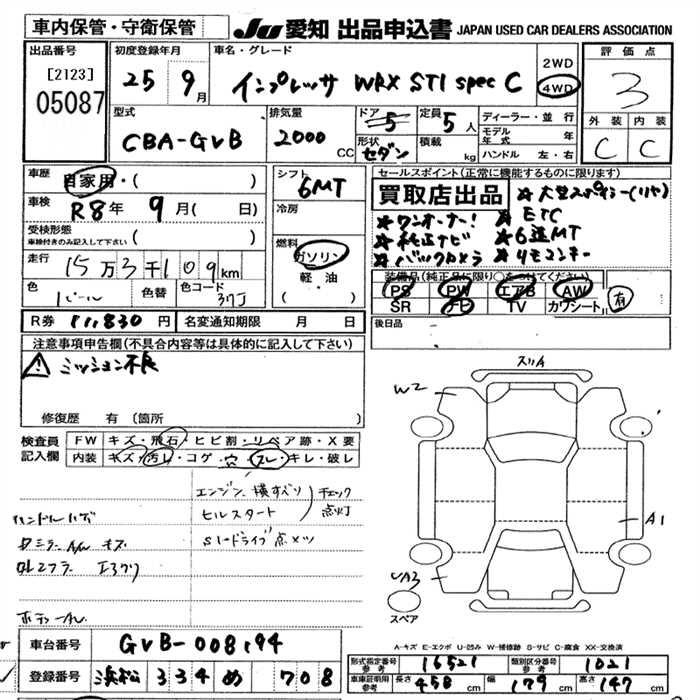 車内保管・守衛保管
JU 愛知 出品申込書 JAPAN USED CAR DEALERS ASSOCIATION
出品番号
[2123]
05087
初度登録年月
25 9月
車名・グレード
インプレッサ WRX STI spec C
2WD
4WD
評価点
3
外装 内装
C C
型式
CBA-GVB
排気量
2000 CC
ドア 5
形状 セダン
定員 5人
積載 kg
ディーラー・並行
モデル年式 年
ハンドル 左・右
車歴 自家用・( )
車検 R8年 9月( 日)
受検形態
車検付きのみ記入して下さい ( )
走行 15万3千109km
色 パール 色替 色コード 37J
シフト 6MT
冷房
燃料 ガソリン
軽・油
セールスポイント(正常に機能するものに限ります)
買取店出品
★大型スポイラー(リヤ)
★ワンオーナー! ★ETC
★純正ナビ ★6速MT
★バックカメラ ★リモコンキー
装備品(純正品に限り○をつけてください)
PS PW エアB AW
SR ナビ TV カワシート
有
R券 11,830円 名変通知期限 月 日
後日品
注意事項申告欄(不具合内容等は具体的に記入して下さい)
ミッション不良
修復歴 有 〔箇所
検査員記入欄
FW キズ・飛石・ヒビ割・リペア跡・X要
内装 キズ・汚レ・コゲ・穴・スレ・キレ・破レ
エンジン 横すべり チェック
ヒルスタート 点灯
SIードライブ 点メツ
スリA
W2
A1
UA3
スペア
A-キズ E-エクボ U-凹み W-補修跡 S-サビ C-腐食 XX-交換済
車台番号 GVB-008194
登録番号 浜松 334 め 708
形式指定番号 参考 16521
類別区分番号 参考 1021
車庫証明用 参考 長さ 458cm 幅 179cm 高さ 147cm